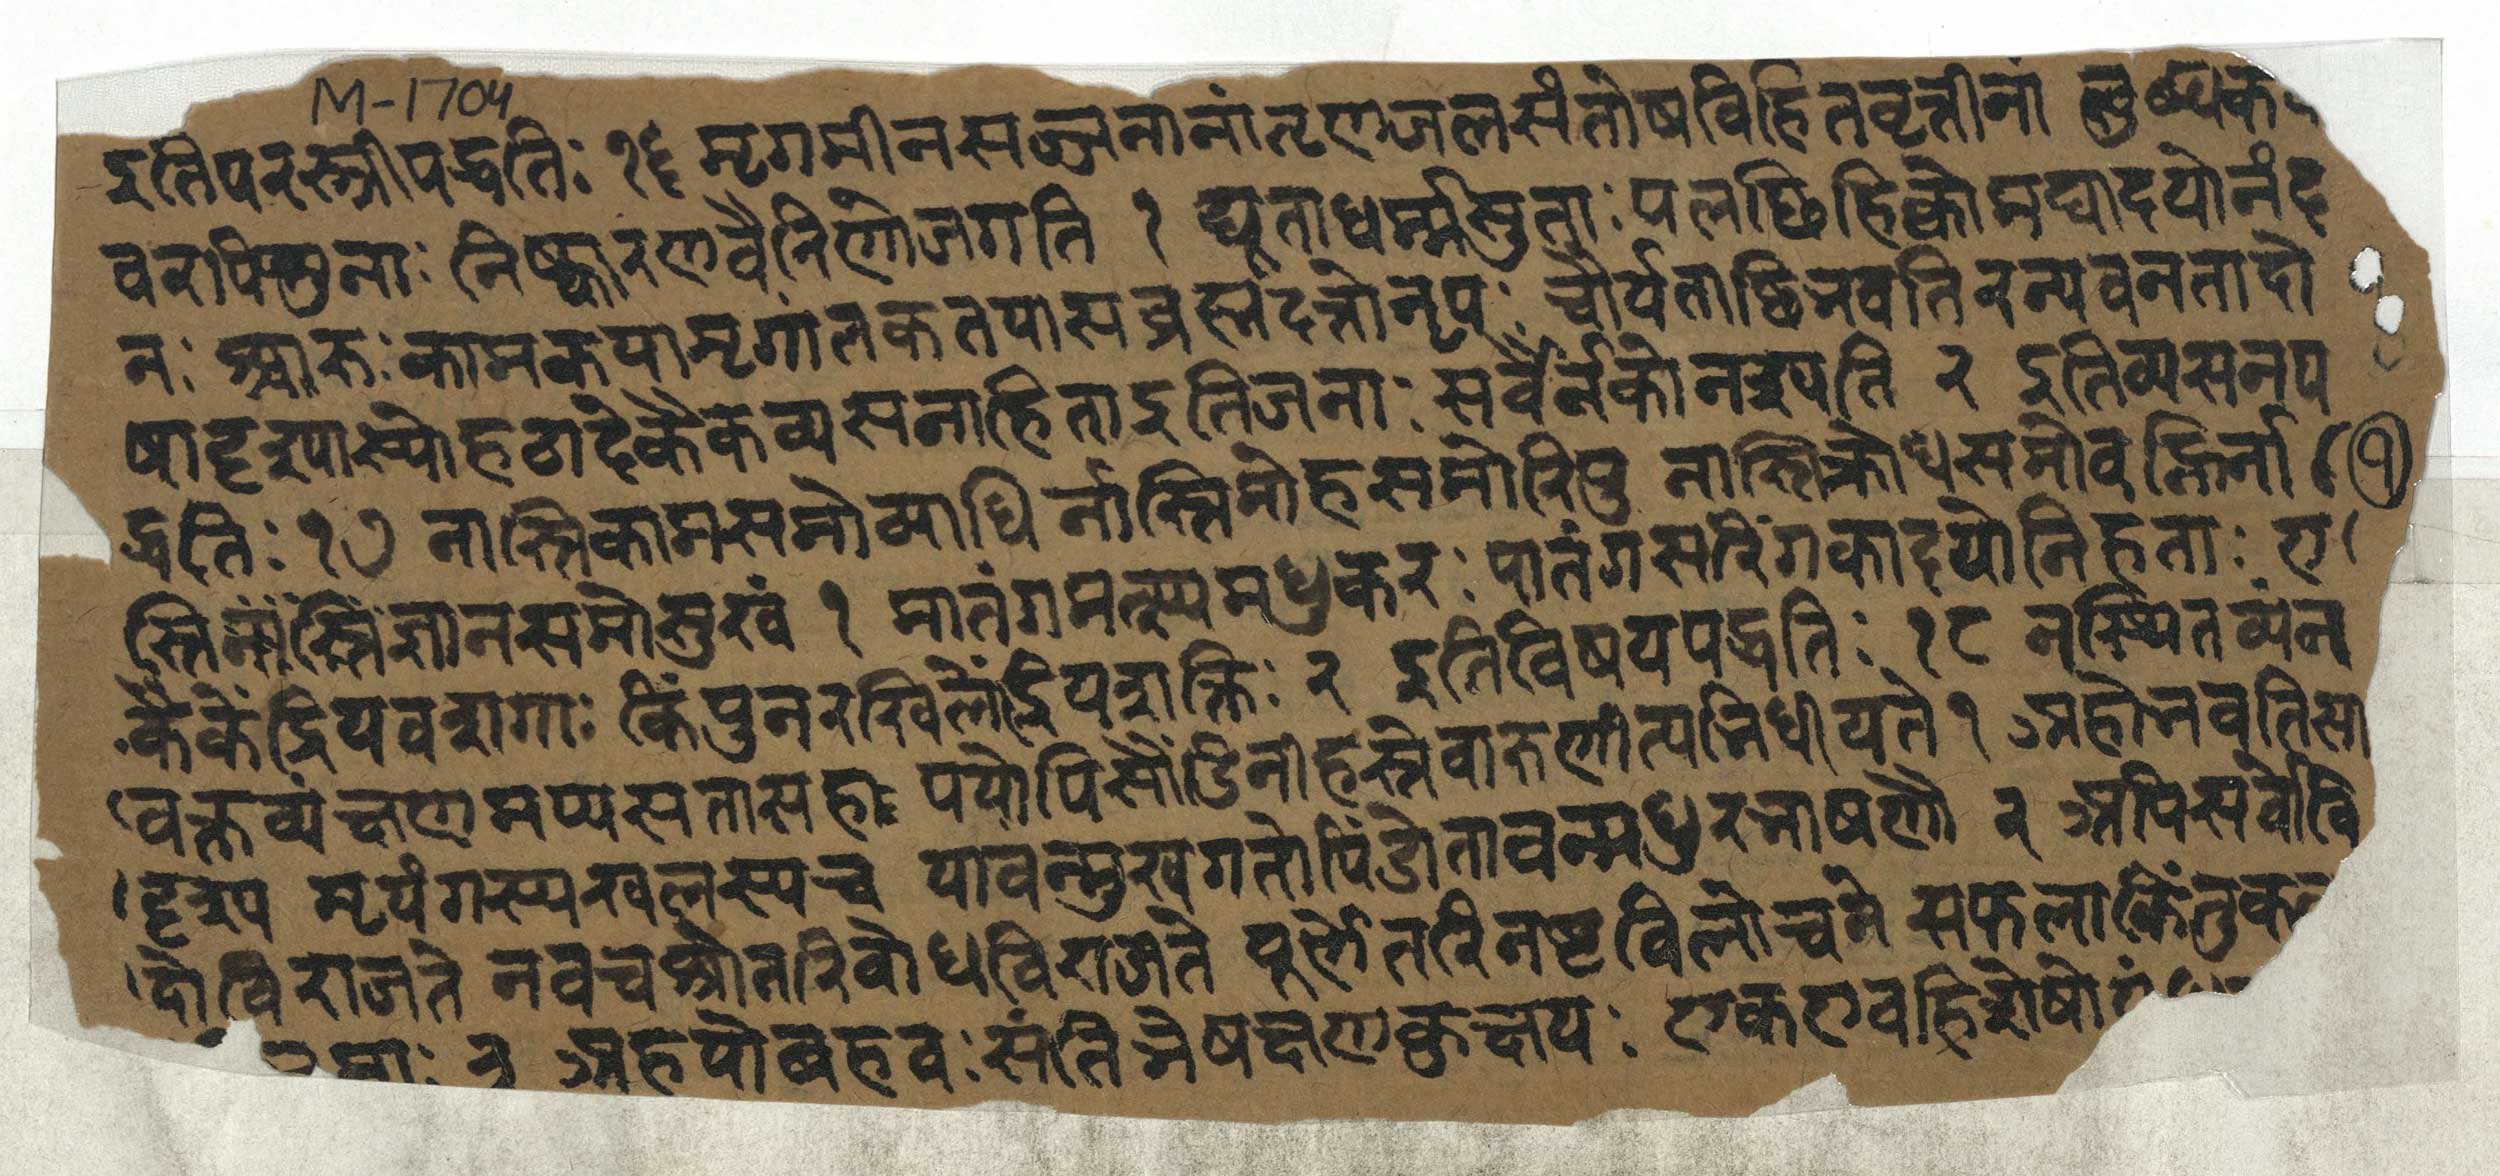 M-1704
इतिपरस्त्रीपद्धतिः १६ मृगमीनसज्जनानांतृणजलसंतोषविहितवृत्तीनां लुब्धक
वरापिसुनाः निष्कारणवैरिणोजगति १ द्यूताधर्म्मसुताः पलछिहिको मद्यादयोर्नंद
नः कामकयामृगांतकतयासब्रह्मदत्तोनृपः चौर्यताछिवनूतिरन्यवनतादो
षाद्दशास्योहठादेकैकव्यसनाहिताइतिजनाः सर्वैर्नकोनश्यति २ इतिव्यसनप
द्धतिः १७ नास्तिकामसमोव्याधि र्नास्तिमोहसमोरिपु नास्तिक्रोधसमोवह्निर्ना १
स्ति र्नास्तिज्ञानसमोसुखं १ मातंगमत्स्यमधुकरः पातंगसारंगकादयोनिहताः ए
कैकेंद्रियवशगाः किंपुनरखिलेंद्रियशक्तिः २ इतिविषयपद्धतिः १८ नस्थितव्यंन
वक्तव्यंक्षणमप्यसतासहाः पयोपिसौंडिनीहस्तेवारुणीत्यभिधीयते १ अहोनवतिसा
दृश्य मृदंगस्यखलस्यच यावन्मुखगतोपिंडोतावन्मधुरभाषणो २ अपिसर्वावि
दोविराजते नवचश्रोतरिवोधविराजते पूर्णेतरिनष्टविलोचने सफलाकिंनुकल
माः ३ अहयोबहवः संतिभेषक्षणकुक्षयः एकएवहिशेषो